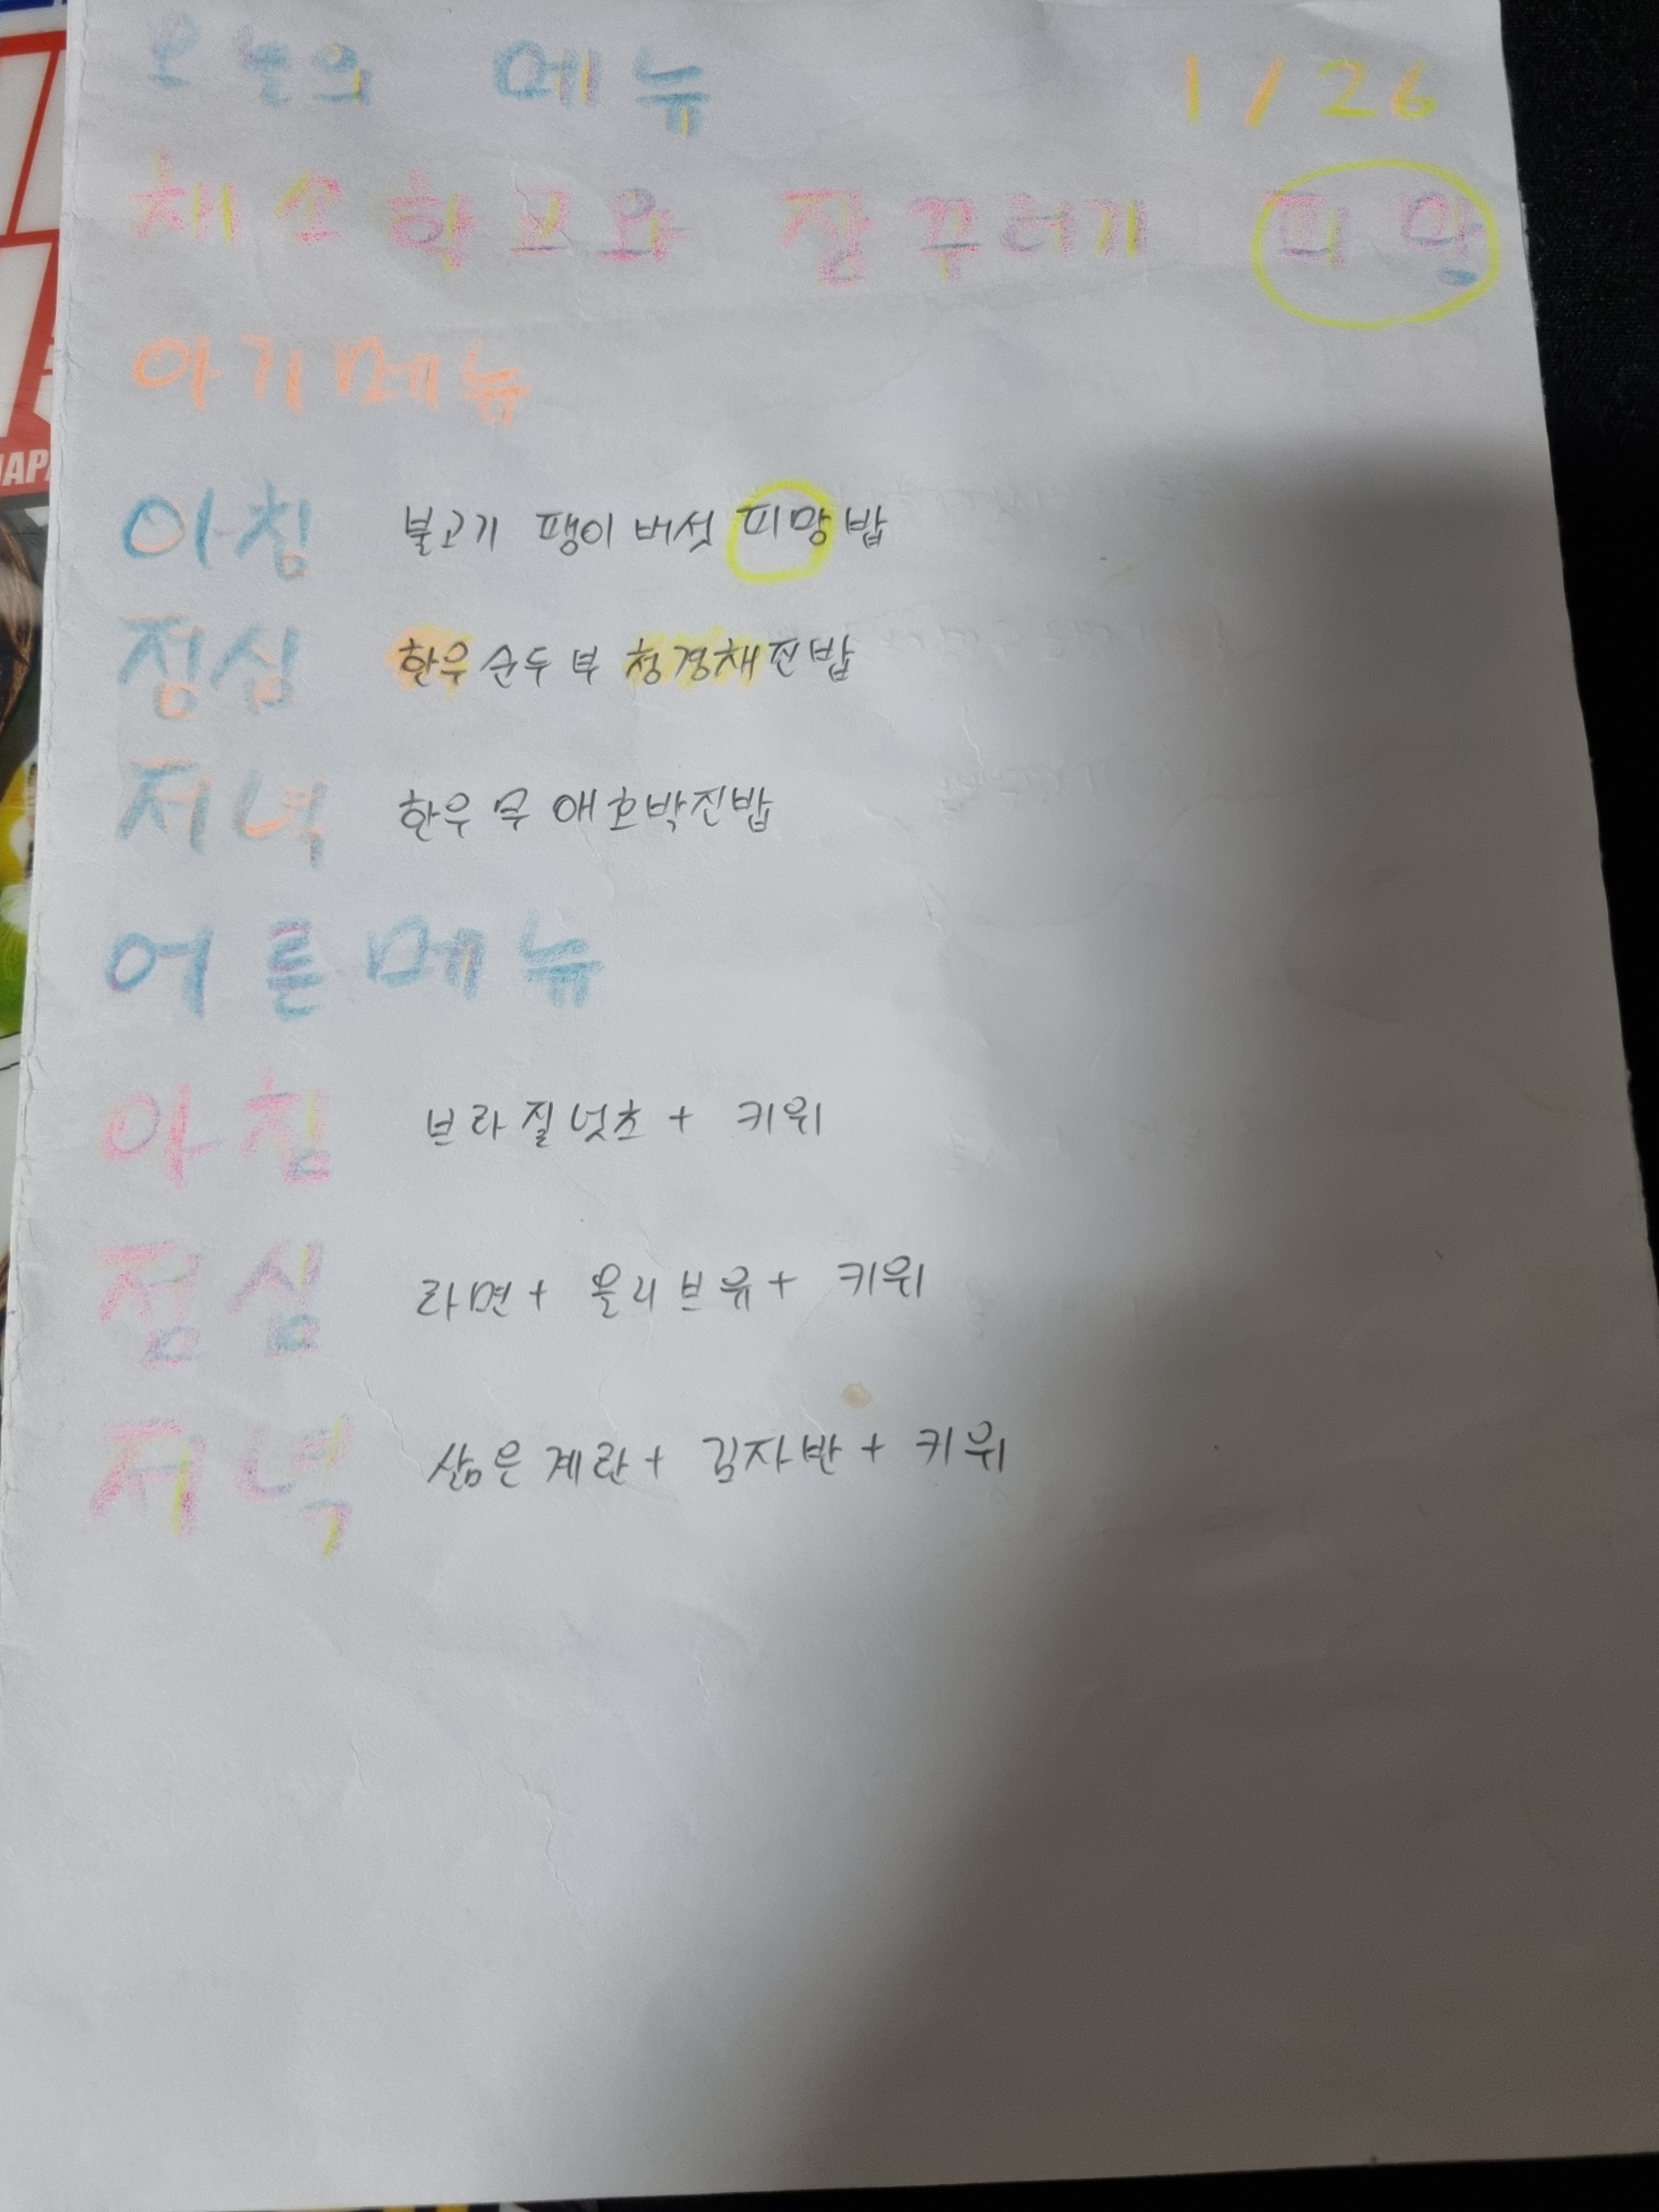 오늘의 메뉴 1/26
채소학교와 장꾸러기 피망
아기메뉴
아침 불고기 팽이버섯 피망밥
점심 한우순두부 청경채진밥
저녁 한우무애호박진밥
어른메뉴
아침 브라질넛츠 + 키위
점심 라면 + 올리브유 + 키위
저녁 삶은계란 + 김자반 + 키위
JAPA